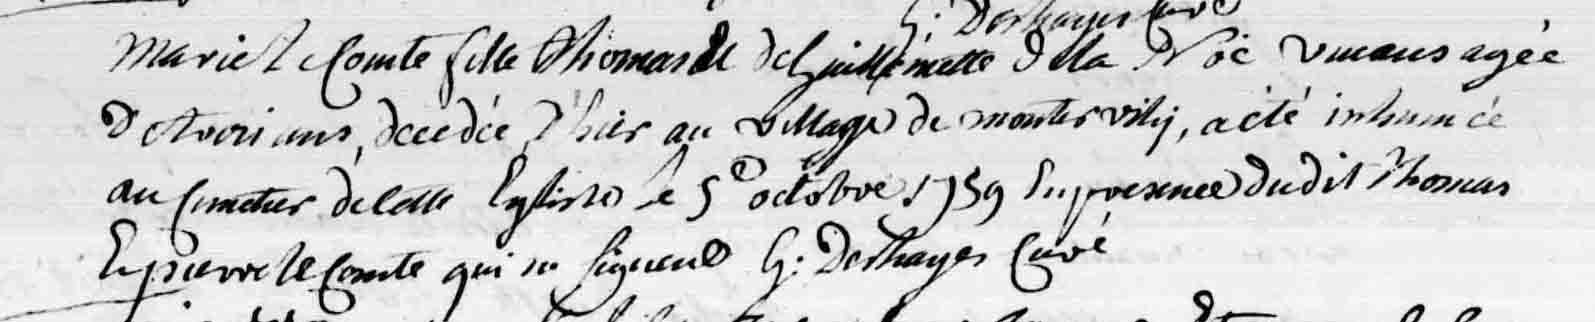 G. Deshayes Curé
Marie Le Comte fille Thomas et de Guillemette De la Noë vivans agée
De trois ans, decedée d'hier au village de montervily, a été inhumée
au Cimetier de cette Eglise le 5e octobre 1759 En presence dudit Thomas
Et pierre le Comte qui ne signent G. Deshayes Curé